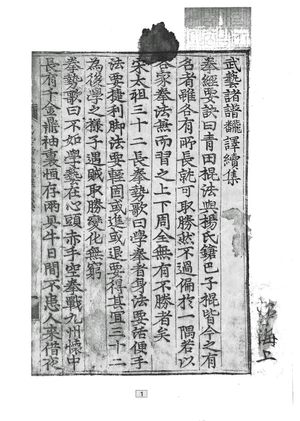 武藝諸譜飜譯續集
拳經要訣曰青田棍法與楊氏鎗巴子棍皆今之有
名者雖各有所長就可取勝然不過偏於一隅若以
各家拳法兼而習之上下周全無有不勝者矣
宋太祖三十二長拳勢歌曰學拳者身法要活便手
法要捷利脚法要輕固或進或退要得其宜三十二
為後學之樣子遇賊取勝變化無窮
拳勢歌曰不如學藝在心頭赤手空拳戰九州懷中
長有千金鼎袖裏恒存兩具牛日間不患人來借夜
海上
1